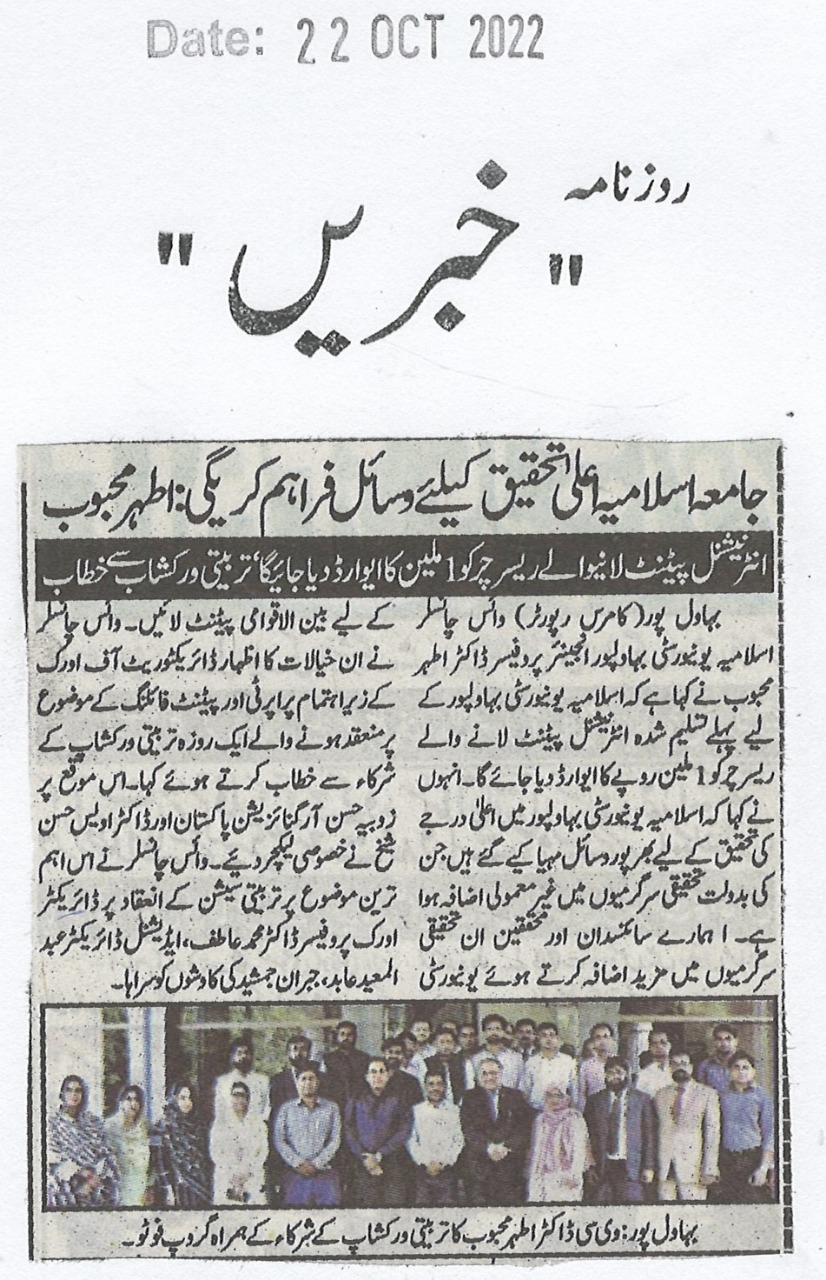 Date: 22 OCT 2022
روزنامہ
"خبریں"
جامعہ اسلامیہ اعلیٰ تحقیق کیلئے وسائل فراہم کریگی: اطہر محبوب
انٹرنیشنل پیٹنٹ لانیوالے ریسرچر کو 1 ملین کا ایوارڈ دیا جائیگا، تربیتی ورکشاپ سے خطاب
بہاول پور (کامرس رپورٹر) وائس چانسلر
اسلامیہ یونیورسٹی بہاولپور انجینئر پروفیسر ڈاکٹر اطہر
محبوب نے کہا ہے کہ اسلامیہ یونیورسٹی بہاولپور کے
لیے پہلے تسلیم شدہ انٹرنیشنل پیٹنٹ لانے والے
ریسرچر کو 1 ملین روپے کا ایوارڈ دیا جائے گا۔ انہوں
نے کہا کہ اسلامیہ یونیورسٹی بہاولپور میں اعلیٰ درجے
کی تحقیق کے لیے بھرپور وسائل مہیا کیے گئے ہیں جن
کی بدولت تحقیقی سرگرمیوں میں غیر معمولی اضافہ ہوا
ہے۔ ا ہمارے سائنسدان اور محققین ان تحقیقی
سرگرمیوں میں مزید اضافہ کرتے ہوئے یونیورسٹی
کے لیے بین الاقوامی پیٹنٹ لائیں۔ وائس چانسلر
نے ان خیالات کا اظہار ڈائریکٹوریٹ آف اورک
کے زیراہتمام پراپرٹی اور پیٹنٹ فائلنگ کے موضوع
پر منعقد ہونے والے ایک روزہ تربیتی ورکشاپ کے
شرکاء سے خطاب کرتے ہوئے کہا۔ اس موقع پر
زوبیہ حسن آرگنائزیشن پاکستان اور ڈاکٹر اویس حسن
شیخ نے خصوصی لیکچر دیئے۔ وائس چانسلر نے اس اہم
ترین موضوع پر تربیتی سیشن کے انعقاد پر ڈائریکٹر
اورک پروفیسر ڈاکٹر محمد عاطف، ایڈیشنل ڈائریکٹر عبد
المعید عابد، جبران جمشید کی کاوشوں کو سراہا۔
بہاول پور: وی سی ڈاکٹر اطہر محبوب کا تربیتی ورکشاپ کے شرکاء کے ہمراہ گروپ فوٹو۔